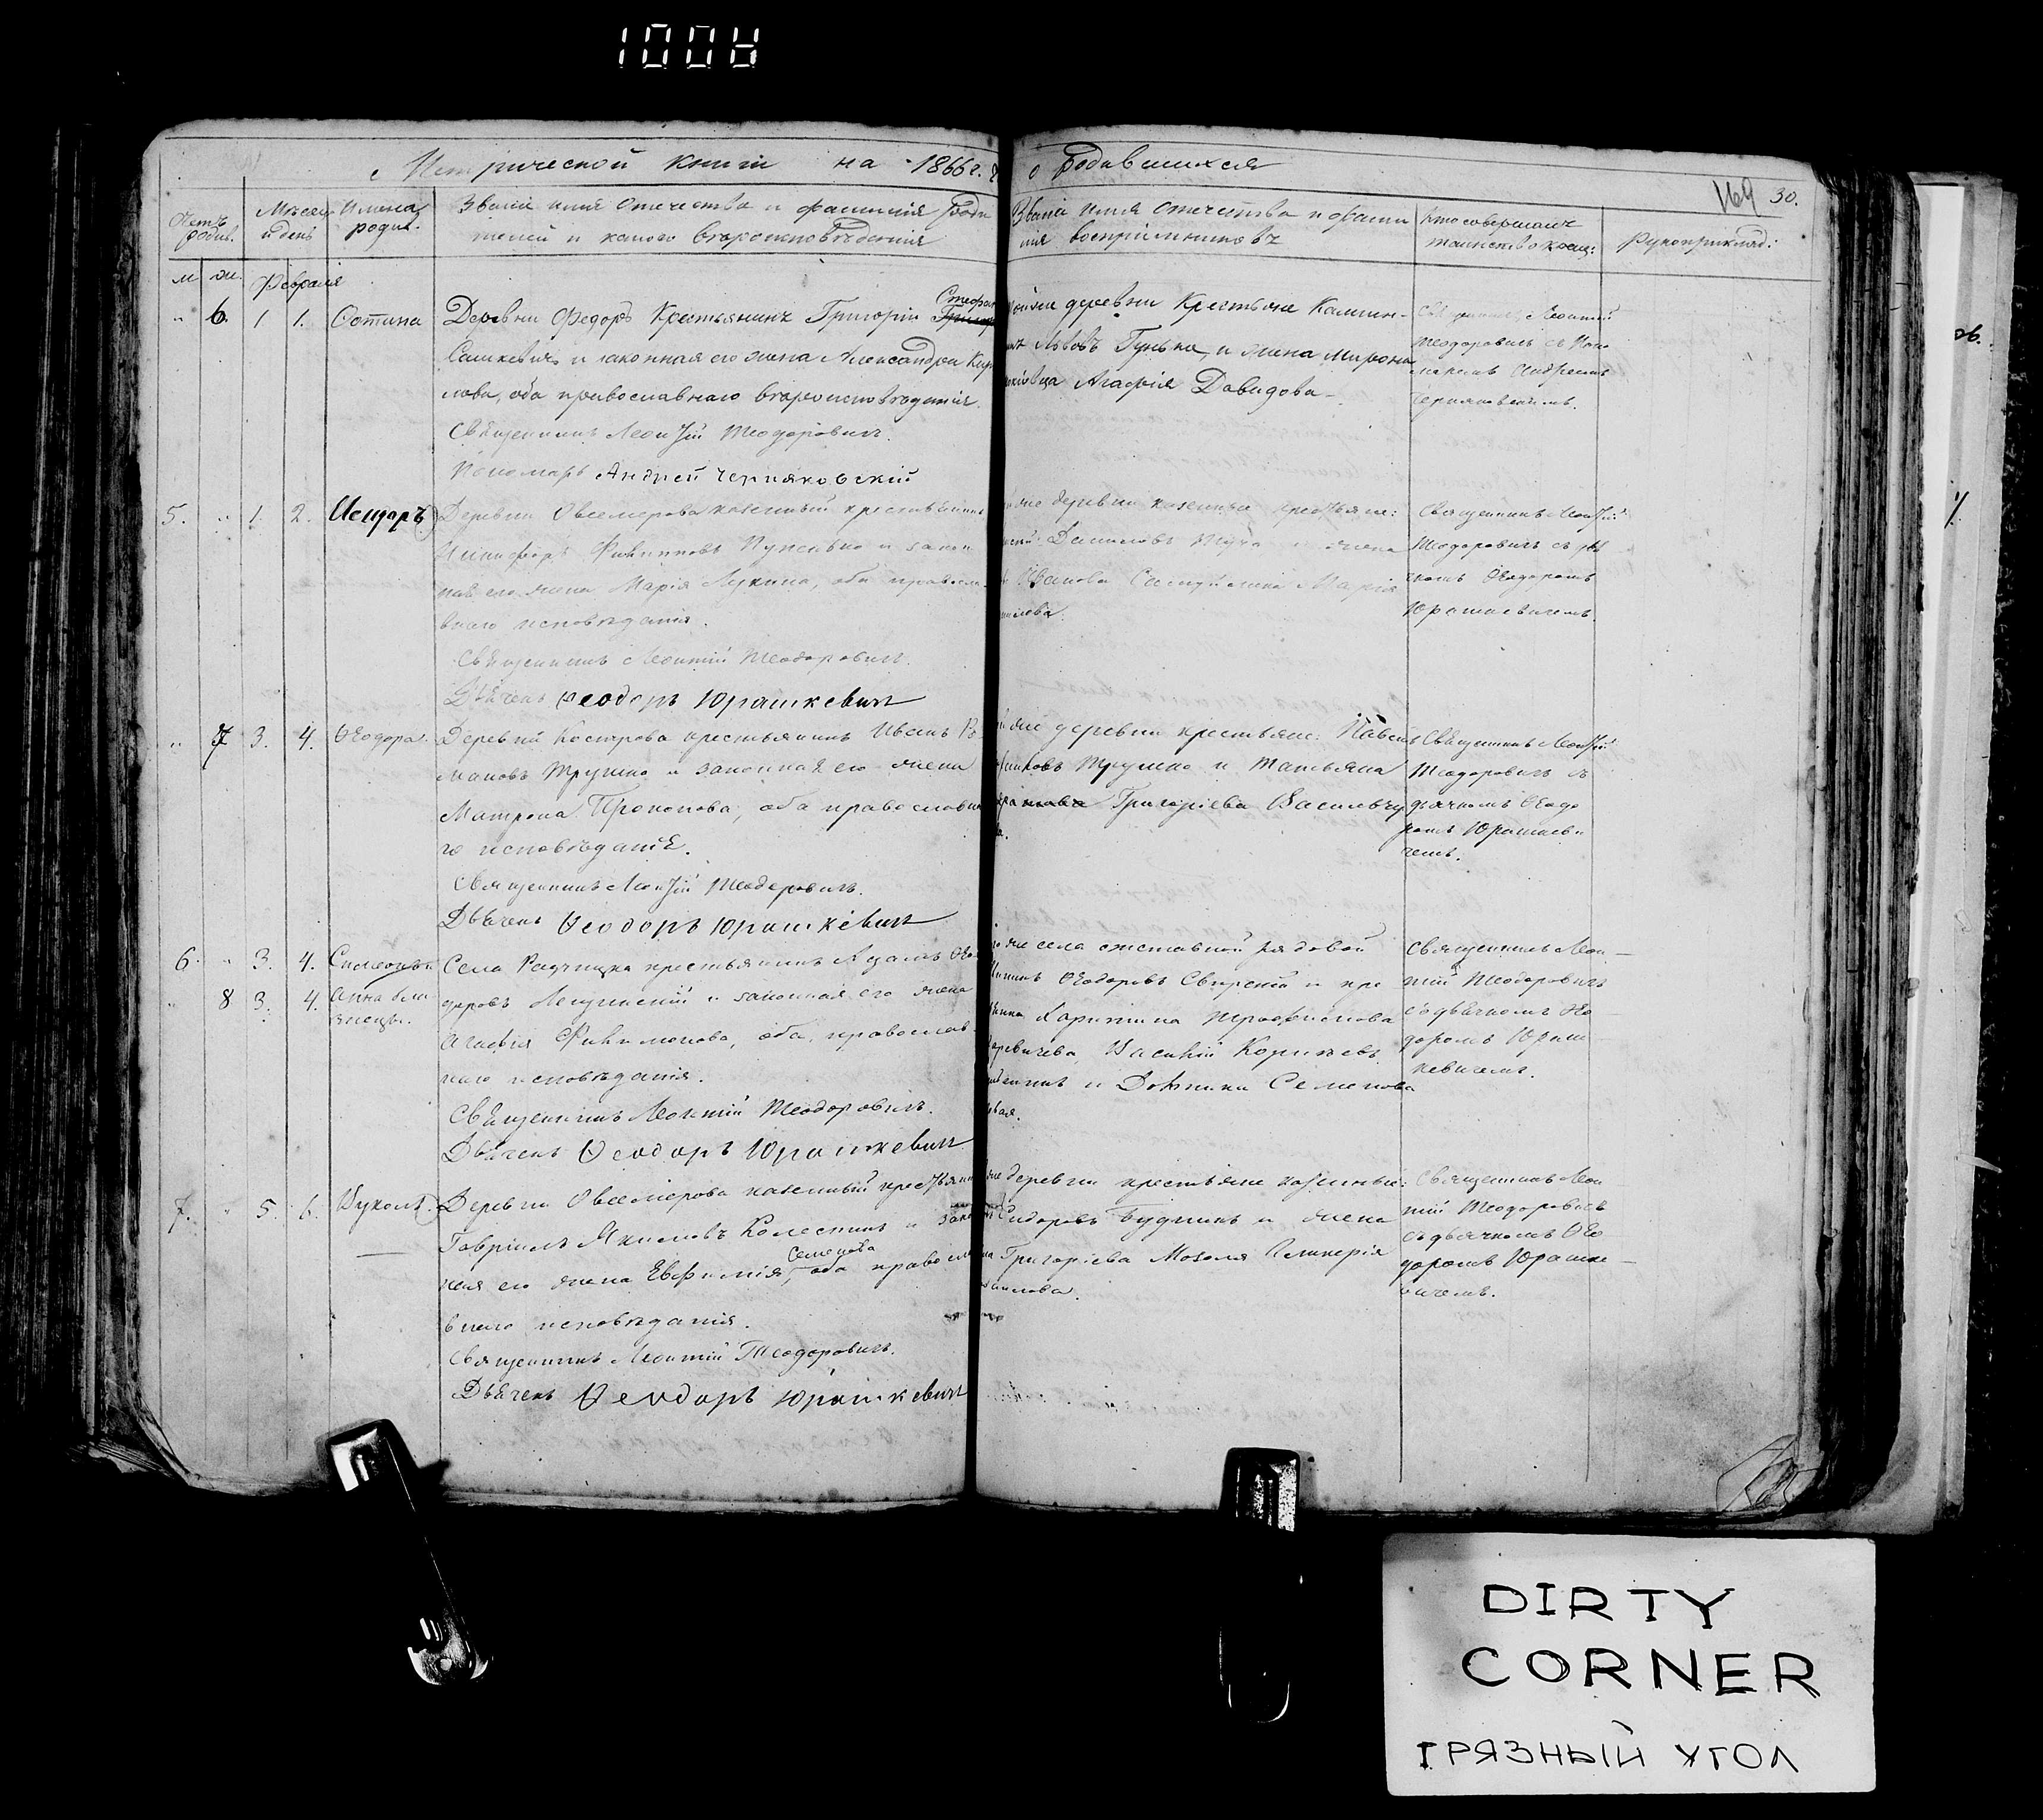 1008
Метрической книги на 1866 г.
о Родившихся
169 30.
Счетъ родив.
Мѣсяцъ и день
Имена родив.
Званіе имя отечество и фамилія Роди
телей и какого вѣроисповѣданія
Званіе имя отечество и фами
лія воспріемниковъ
Кто совершалъ таинство крещ:
Рукоприклад:
м ж. Февраля
" 6. 1 1. Фотина
Деревни Федоръ Крестьянинъ Григорій Стефан
Сашкевичъ и законная его жена Александра Кир
лова, оба православнаго вѣроисповѣданія.
Священникъ Леонтій Теодоровичъ.
Пономарь Андрей Черняковскій
деревни Крестьяне
Львовъ Гунька, и жена Мирона
Агафія Давидова
Священникъ Леонтій
Теодоровичъ съ Поно
маремъ Андреемъ
Черняковскимъ.
5. " 1. 2. Исидоръ
Деревни Овсемерова казенный крестьянинъ
Никифоръ Филиповъ и закон
ная его жена Марія Лукина, оба правосла
внаго исповѣданія.
Священникъ Леонтій Теодоровичъ.
Дьячекъ Ѳеодоръ Юрашкевичъ
же деревни казенные крестьяне:
Даниловъ и жена
Иванова Марія
Священникъ Леонтій
Теодоровичъ съ дья
чкомъ Ѳеодоромъ
Юрашкевичемъ.
" 7 3. 4. Ѳеодора.
Деревни Кострова крестьянинъ Иванъ Ро
мановъ Трушко и законная его жена
Матрона Прокопова, оба православна
го исповѣданія.
Священникъ Леонтій Теодоровичъ.
Дьячекъ Ѳеодоръ Юрашкевичъ
же деревни крестьяне: Павелъ
Трушко и Татьяна
Григоріева Васильчу
Священникъ Леонтій
Теодоровичъ съ
дьячкомъ Ѳеодо
ромъ Юрашкеви
чемъ.
6. " 3. 4. Симеонъ и
" 8 3. 4. Анна бли
знецы.
Села Радчицка крестьянинъ Адамъ Ѳео
доровъ Лещинскій и законная его жена
Агафія Филимонова, оба, православ
наго исповѣданія.
Священникъ Леонтій Теодоровичъ.
Дьячекъ Ѳеодоръ Юрашкевичъ
же села отставной рядовой
Ѳеодоровъ Свирскій и кре
Харитина Трофимова
Василій
и Домникія Семенова
Священникъ Леон
тій Теодоровичъ
съ дьячкомъ Ѳео
доромъ Юраш
кевичемъ.
7. " 5. 6. Вуколъ.
Деревни Овсемерова казенный крестьянин
Гавріилъ Якимовъ Колесникъ и закон
ная его жена Евфимія Семенова, оба правосла
внаго исповѣданія.
Священникъ Леонтій Теодоровичъ.
Дьячекъ Ѳеодоръ Юрашкевичъ
же деревни крестьяне казенные:
Сидоровъ Будникъ и жена
Григоріева Мозоля Гликерія
Священникъ Леон
тій Теодоровичъ
съ дьячкомъ Ѳео
доромъ Юрашке
вичемъ.
DIRTY
CORNER
ГРЯЗНЫЙ УГОЛ